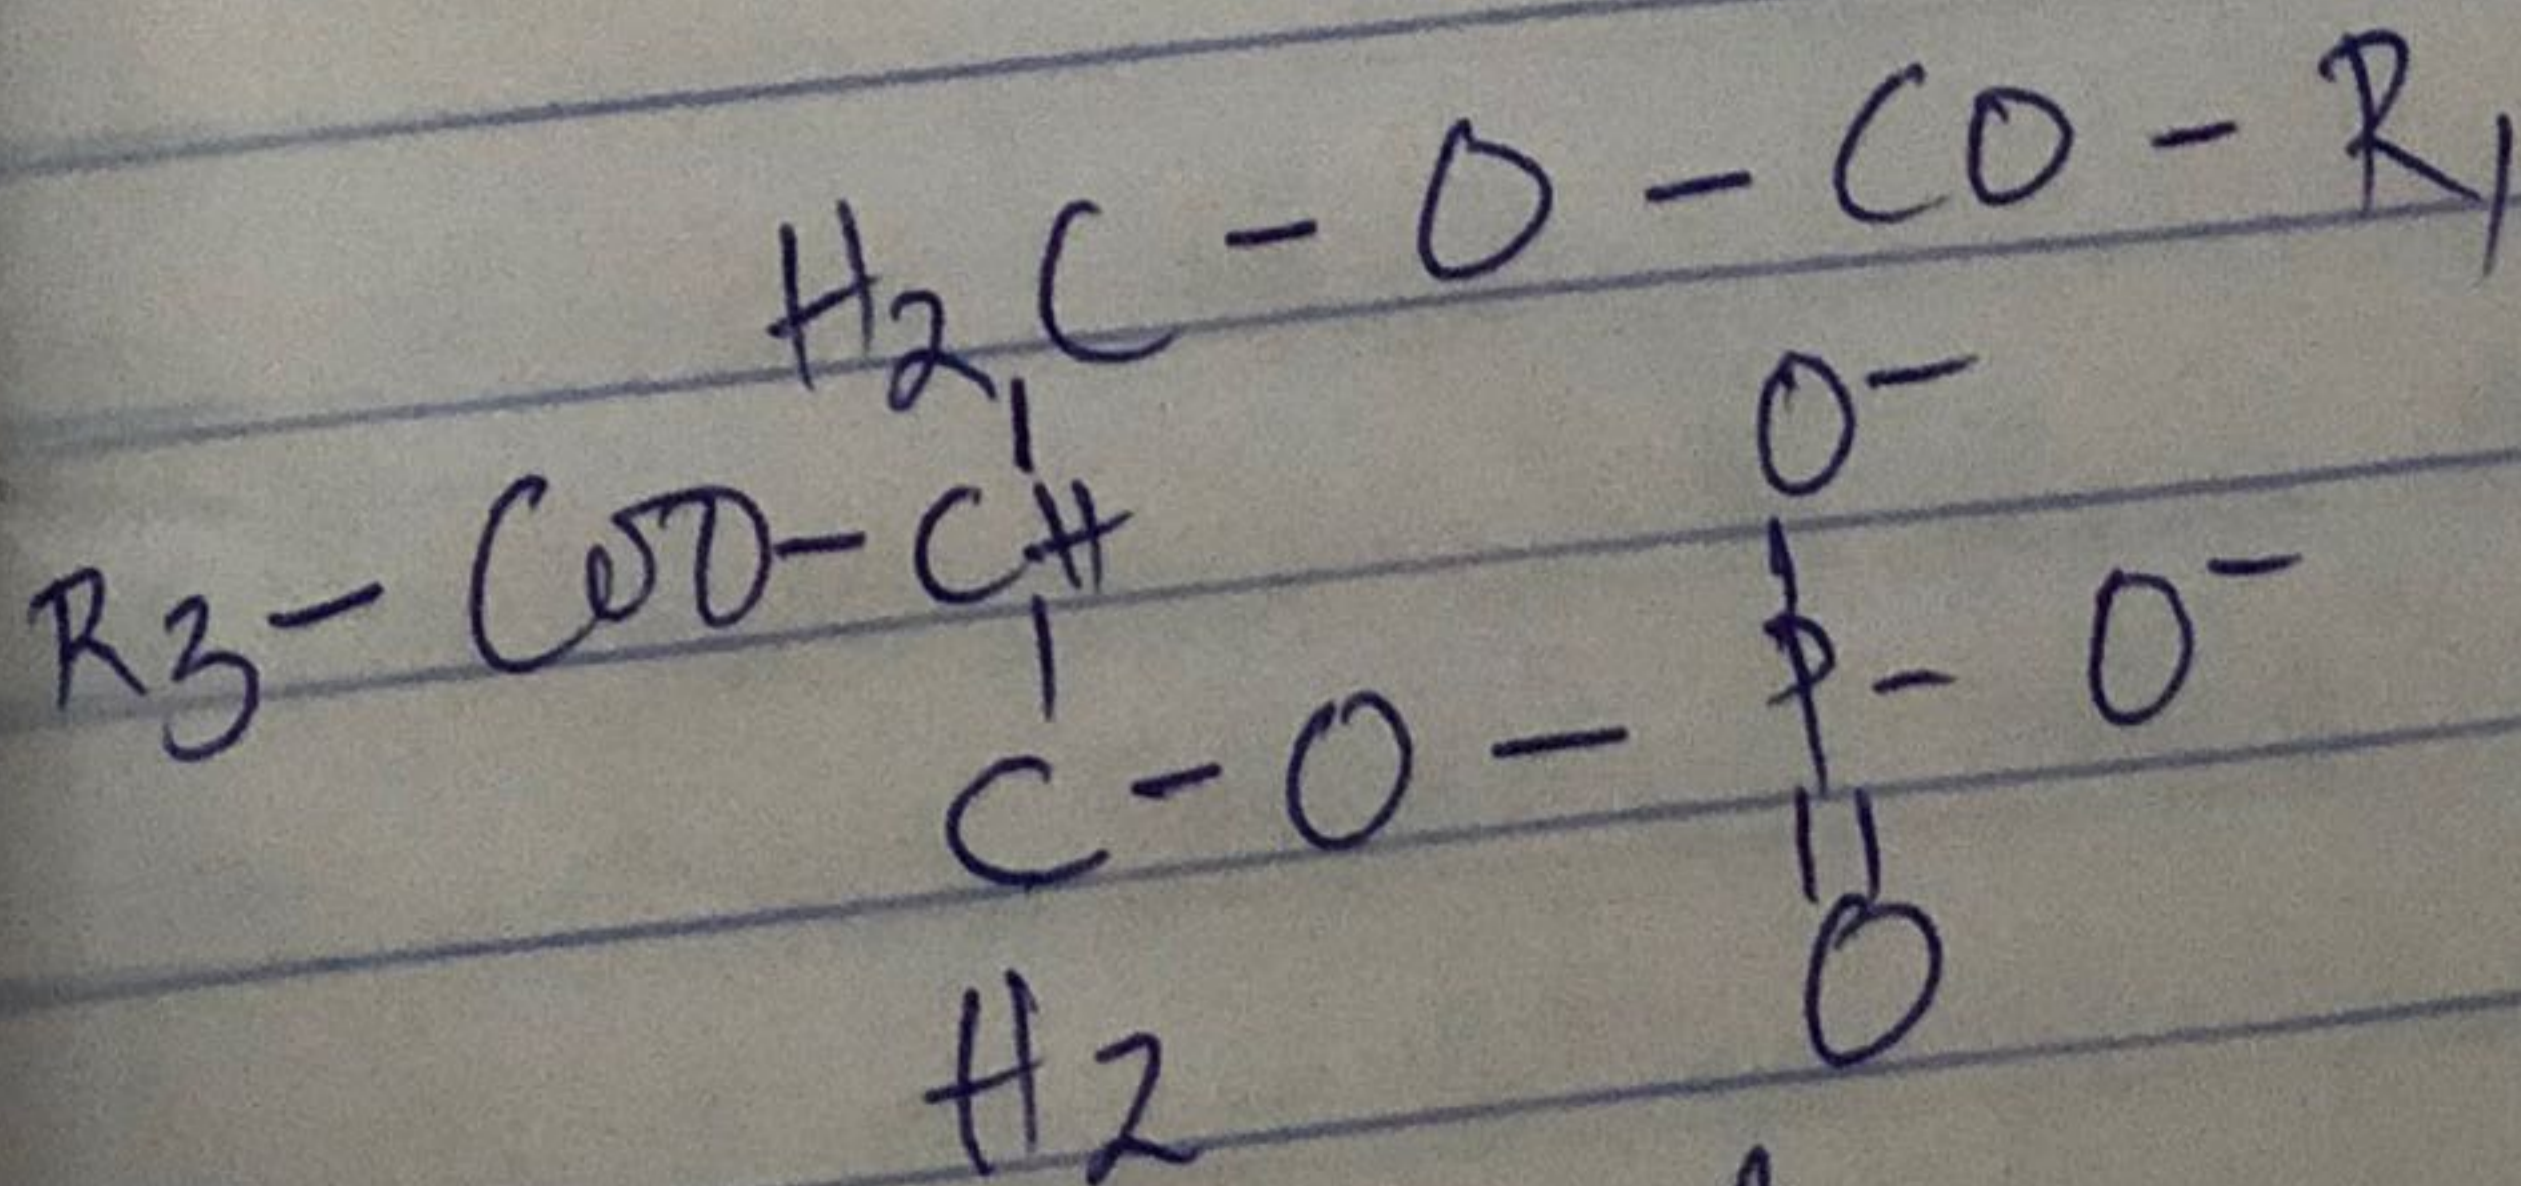 H2C - O - CO - R1
O-
R3 - COO - CH
P - O-
C - O -
O
H2